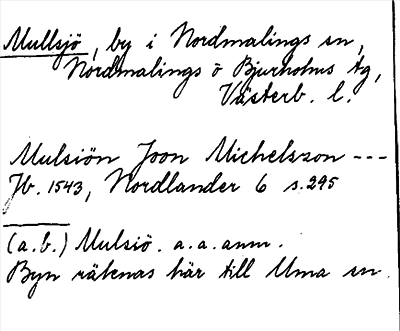 Mullsjö, by i Nordmalings sn,
Nordmalings o Bjurholms tg,
Västerb. l.
Mulsiön Joon Michelsson ---
Jb. 1543, Nordlander 6 s.295
(a.b.) Mulsiö. a.a. anm.
Byn räknas här till Uma sn.